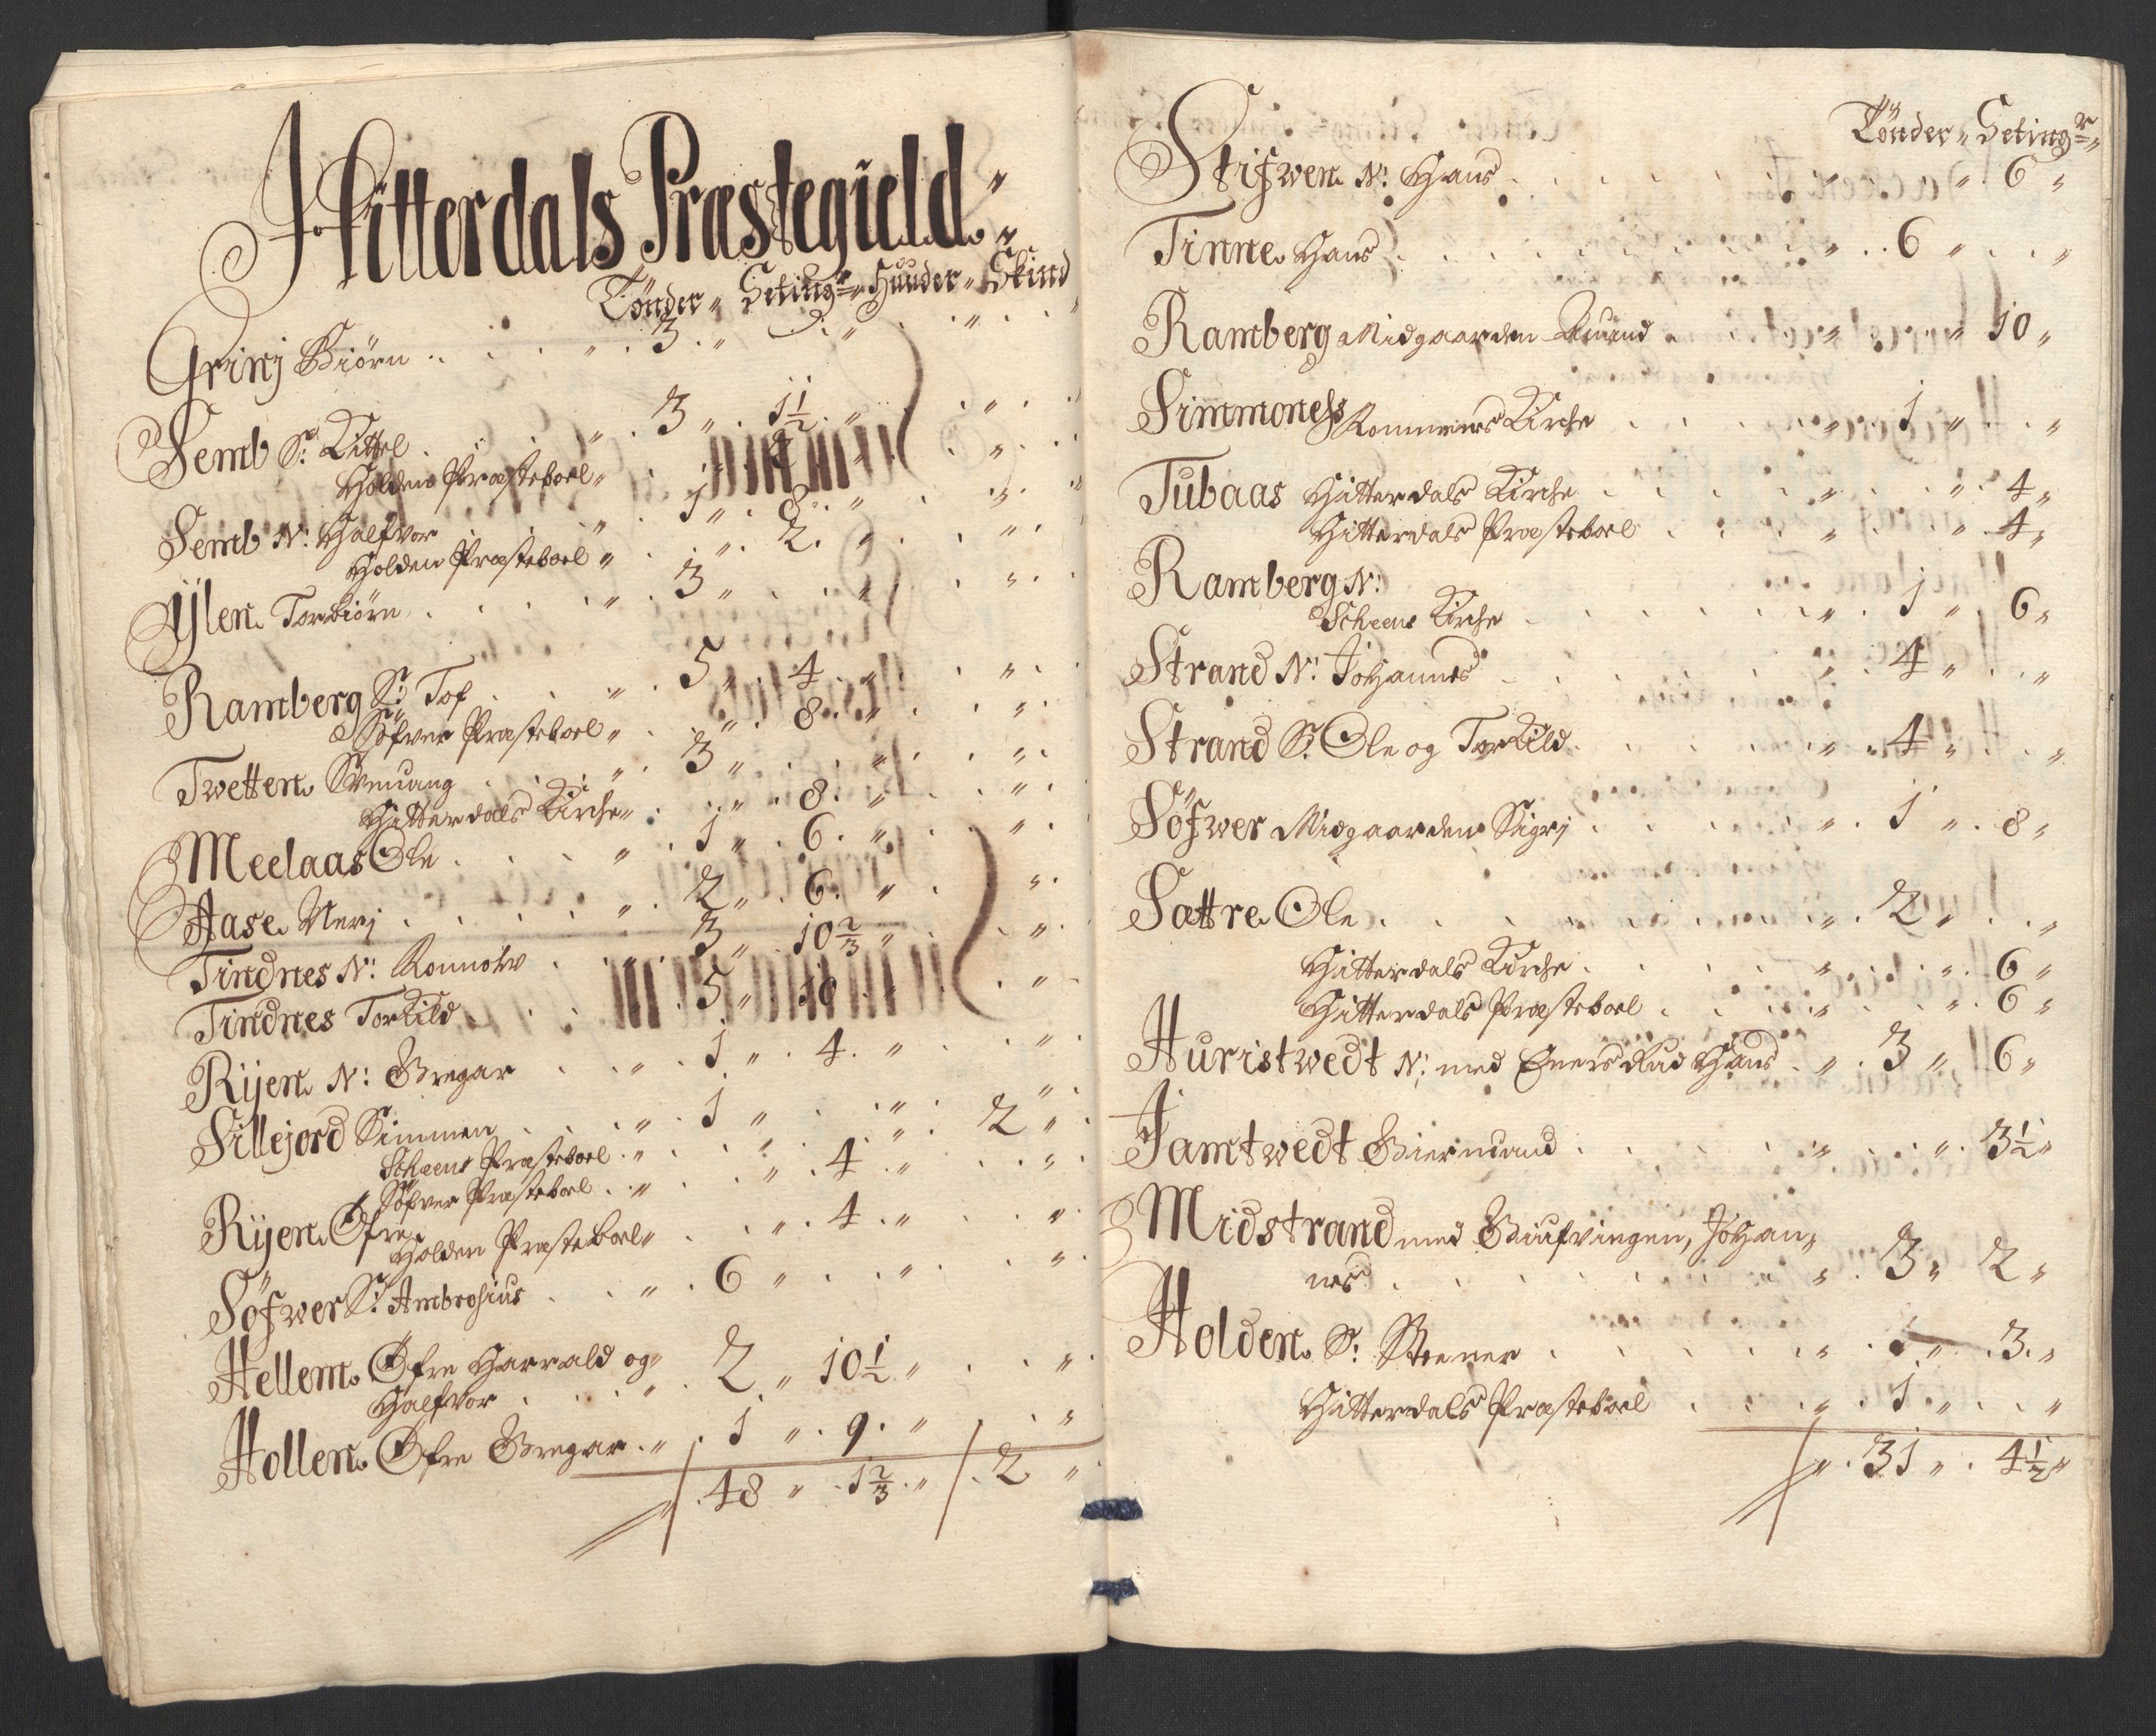 Hitterdals Præstegield
Tönder " Setingr " Huuder " Skind
Grinj Biörn . . . " 3 " . " . " .
Semb S: Kittel . . . " 3 " 1½ " . " .
Holdens Præsteboel " . 
Semb N: Halfvor . . . " 1 " 8 " . " .
Holden Præsteboel " . " 2 " . " .
Ijlen Torbiörn . . . " 3 " . " . " .
Ramberg S: Tof . . " 5 " 4 " . " .
Söfver Præsteboel " . " 8 " . " .
Twetten Svenung . . " 3 " . " . " .
Hitterdals Kirche " . " 8 " . " .
Meelaas Ole . . . " 1 " 6 " . " .
Aase Nerj . . . " 2 " 6 " . " .
Tindnes N: Ronnow . . " 3 " 10⅔ " . " .
Tindnes Torkild . . " 5 " 10 . " .
Rijen N: Gregar . . " 1 " 4 " . " .
Sillejord Simmen . . " 1 " . " . " .
Scheens Præsteboel . " . " . " 2 " .
Söfver Præsteboel . " . " 4 " . " .
Rijen Öfre
Holden Præsteboel " . " 4 " . " .
Söfwer S: Ambrosius . . " 6 " . " . "
Hellem Öfre Harrald og "
Halfvor . . . " 2 " 10½ " . " .
Hollen Öfre Gregar . " 1 " 9 " . "
" 48 " 1⅔ " 2 "
Tönder " Setingr "
Stifwen N: Hans . . . " . " 6 "
Tinne Hans . . . " 6 " . "
Ramberg Midgaarden Amund . " . " 10 "
Simmoness Rommenes Kirche . . " 1 " . "
Tubaas Hitterdals Kirche . . " . " 4 "
Hitterdals Præsteboel . . " . " 4 "
Ramberg N:
Scheens Kirche . . . " 1 " 6 "
Strand N: Johannes . . " 4 " . "
Strand S: Ole og Torkild . . " 4 " . "
Söfwer Midgaarden Sigrj . . " 1 " 8 "
Sattre Ole . . . " 2 " . "
Hitterdals Kirche . . " . " 6 "
Hitterdals Præsteboel . . " . " 6 "
Huristwedt N: med Enersrud Hans . " 3 " 6 "
Jamtwedt Giermund . . " . " 3½ "
Midstrand med Giufvingen, Johan,
nes . . . " 3 " 2 "
Holden S: Steener . . " . " 3 "
Hitterdals Præsteboel . . " 1 " . "
" 31 " 4½ "